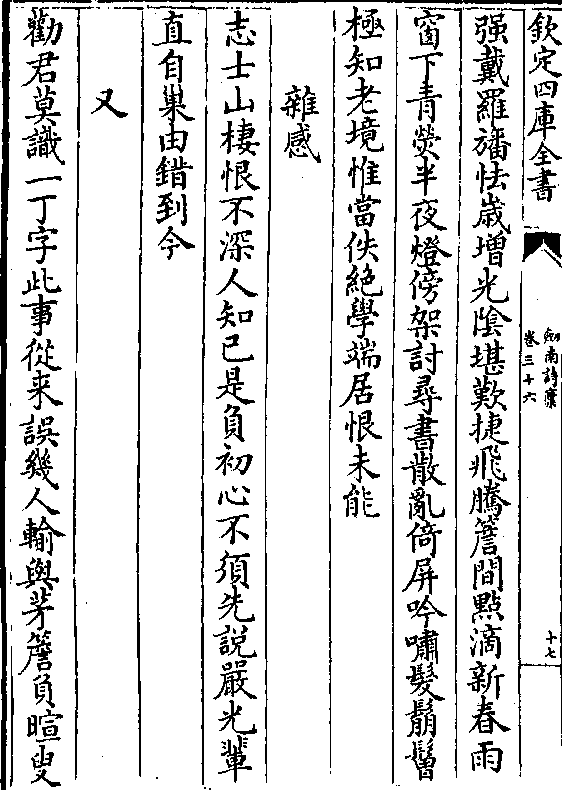 欽定四庫全書
劔南詩藁
卷三十六
十七
强戴羅旛怯歲增光陰堪歎捷飛騰簷間點滴新春雨
窗下青熒半夜燈傍架討尋書散亂倚屏吟嘯髮鬅鬙
極知老境惟當佚絶學端居恨未能
雜感
志士山棲恨不深人知已是負初心不須先說嚴光輩
直自巢由錯到今
又
勸君莫識一丁字此事從来誤幾人輸與茅簷負暄叟